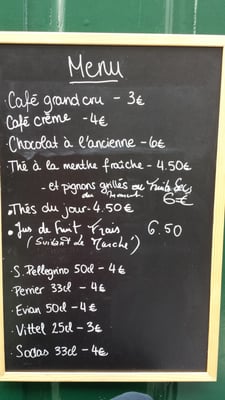 Menu
·Café grand cru - 3€
Café crème - 4€
Chocolat à l'ancienne - 6€
Thé à la menthe fraîche - 4.50€
- et pignons grillés ou Fruits Secs
du moment 6€
•Thés du jour - 4.50€
•Jus de Fruit Frais 6.50
(Suivant le Marché)
·S. Pellegrino 50cl - 4€
·Perrier 33cl - 4€
·Evian 50cl - 4€
·Vittel 25cl - 3€
·Sodas 33cl - 4€